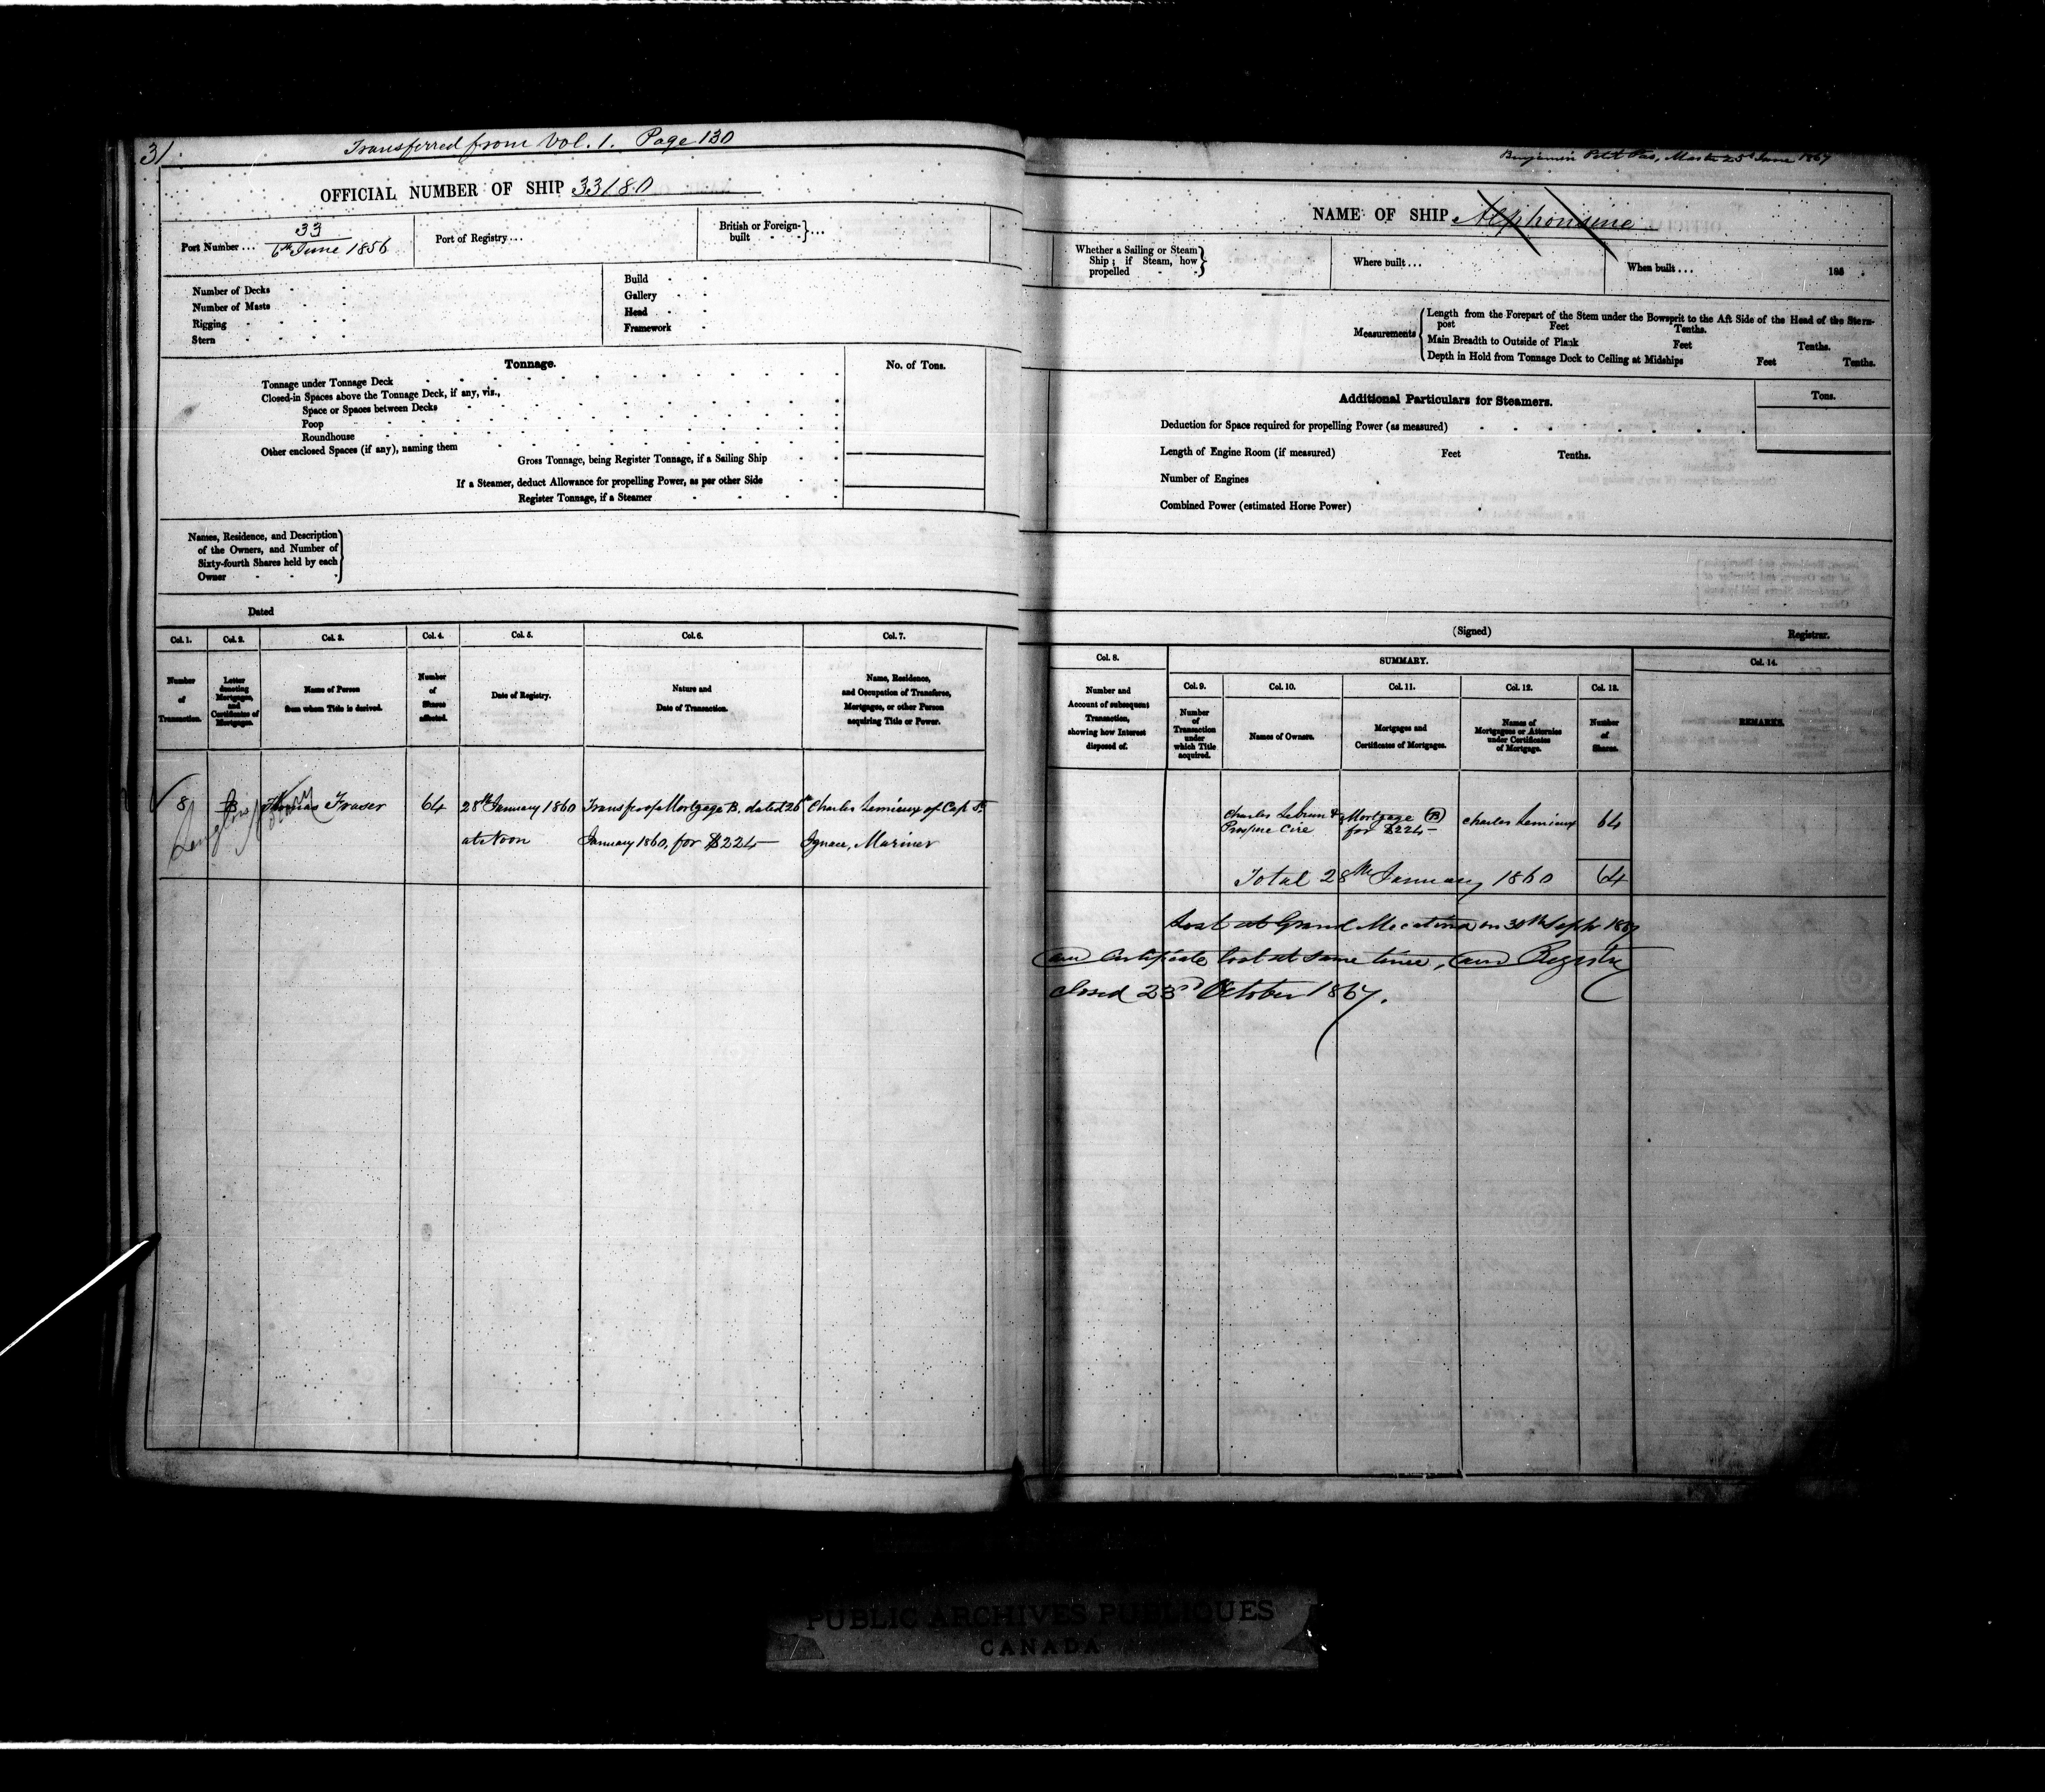 31.
Transferred from Vol. 1. Page 130
OFFICIAL NUMBER OF SHIP 33180
Port Number ... 33
6th June 1856
Port of Registry ...
British or Foreign-
built } ...
Number of Decks
Number of Masts
Rigging
Stern
Build
Gallery
Head
Framework
Tonnage.
No. of Tons.
Tonnage under Tonnage Deck
Closed-in Spaces above the Tonnage Deck, if any, viz.,
Space or Spaces between Decks
Poop
Roundhouse
Other enclosed Spaces (if any), naming them
Gross Tonnage, being Register Tonnage, if a Sailing Ship
If a Steamer, deduct Allowance for propelling Power, as per other Side
Register Tonnage, if a Steamer
Names, Residence, and Description
of the Owners, and Number of
Sixty-fourth Shares held by each
Owner
Dated
Col. 1.
Col. 2.
Col. 3.
Col. 4.
Col. 5.
Col. 6.
Col. 7.
Number
of
Transaction.
Letter
denoting
Mortgages,
and
Certificates of
Mortgages.
Name of Person
from whom Title is derived.
Number
of
Shares
affected.
Date of Registry.
Nature and
Date of Transaction.
Name, Residence,
and Occupation of Transferee,
Mortgagee, or other Person
acquiring Title or Power.
8
B
Thomas Fraser
64
28th January 1860
at Noon
Transfer of Mortgage B. dated 26th
January 1860, for $224—
Charles Lemieux of Cap St.
Ignace, Mariner
Benjamin Petit Pas, Master 25th June 1867
NAME OF SHIP Alphonsine
Whether a Sailing or Steam
Ship; if Steam, how
propelled
Where built ...
When built ... 185 .
Measurements
Length from the Forepart of the Stem under the Bowsprit to the Aft Side of the Head of the Stern-
post Feet Tenths.
Main Breadth to Outside of Plank Feet Tenths.
Depth in Hold from Tonnage Deck to Ceiling at Midships Feet Tenths.
Additional Particulars for Steamers.
Tons.
Deduction for Space required for propelling Power (as measured)
Length of Engine Room (if measured) Feet Tenths.
Number of Engines
Combined Power (estimated Horse Power)
(Signed) Registrar.
Col. 8.
SUMMARY.
Col. 14.
Col. 9.
Col. 10.
Col. 11.
Col. 12.
Col. 13.
Number and
Account of subsequent
Transaction,
showing how Interest
disposed of.
Number
of
Transaction
under
which Title
acquired.
Names of Owners.
Mortgages and
Certificates of Mortgages.
Names of
Mortgagees or Attornies
under Certificates
of Mortgage.
Number
of
Shares.
REMARKS.
Charles Lebrun &
Prospere Cire
Mortgage (B)
for $224—
Charles Lemieux
64
Total 28th January 1860 64
Lost at Grand Mecatina on 30th Septr 1867
and Certificate lost at same time, and Registry
closed 23rd October 1867.
PUBLIC ARCHIVES PUBLIQUES
CANADA